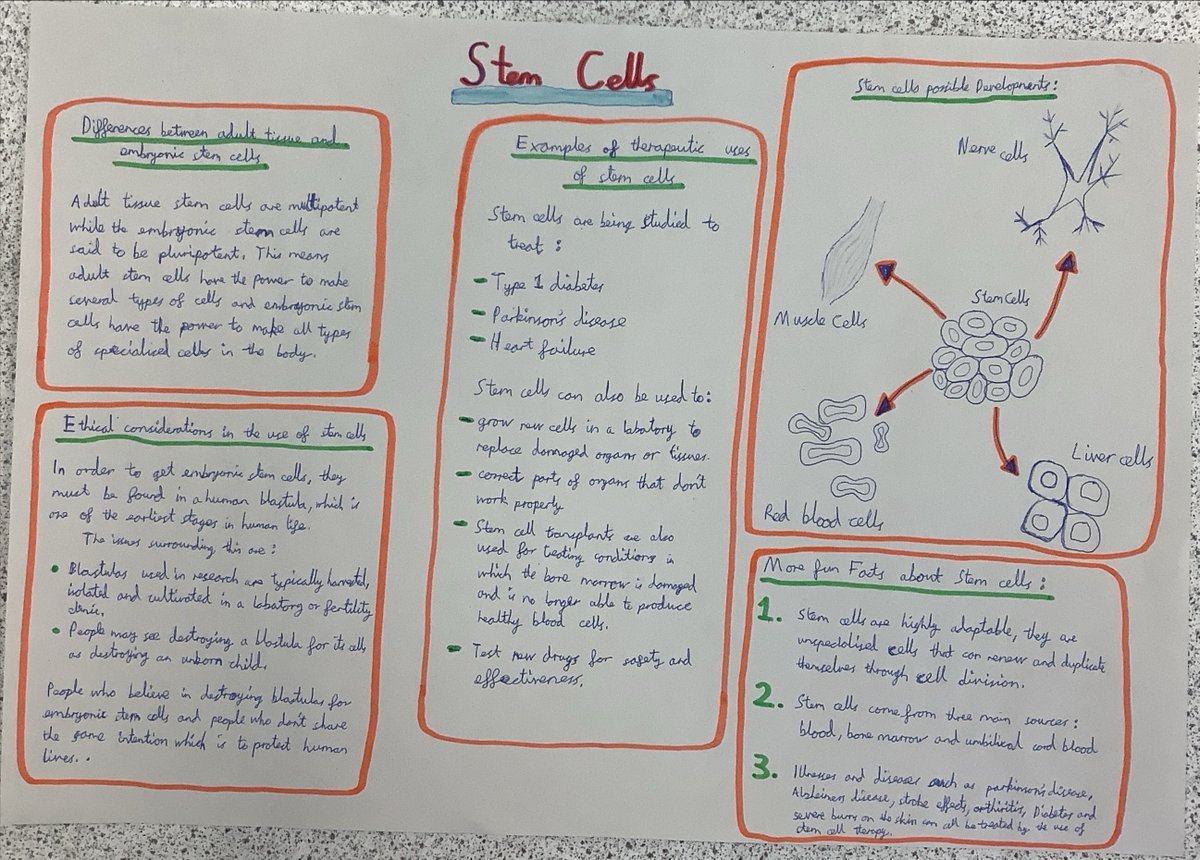 Stem Cells
Differences between adult tissue and
embryonic stem cells
Adult tissue stem cells are multipotent
while the embryonic stem cells are
said to be pluripotent. This means
adult stem cells have the power to make
several types of cells and embryonic stem
cells have the power to make all types
of specialised cells in the body.
Ethical considerations in the use of stem cells
In order to get embryonic stem cells, they
must be found in a human blastula, which is
one of the earliest stages in human life.
The issues surrounding this are:
Blastulas used in research are typically harvested,
isolated and cultivated in a labatory or fertility
clinic.
People may see destroying a blastula for its cells
as destroying an unborn child.
People who believe in destroying blastulas for
embryonic stem cells and people who don't share
the same intention which is to protect human
lives..
Examples of therapeutic uses
of stem cells
Stem cells are being studied to
treat:
- Type 1 diabetes
- Parkinson's disease
- Heart failure
Stem cells can also be used to:
- grow new cells in a labatory to
replace damaged organs or tissues.
- correct parts of organs that don't
work properly
- Stem cell transplants are also
used for testing conditions in
which the bone marrow is damaged
and is no longer able to produce
healthy blood cells.
- Test new drugs for safety and
effectiveness.
Stem cells possible Developments:
Nerve cells
Stem Cells
Muscle Cells
Liver cells
Red blood cells
More fun Facts about Stem cells:
1. Stem cells are highly adaptable, they are
unspecialised cells that can renew and duplicate
themselves through cell division.
2. Stem cells come from three main sources:
blood, bone marrow and umbilical cord blood
3. Illnesses and diseases such as parkinson's disease,
Alzheimers disease, stroke effects, arthiritis, Diabetes and
severe burns on the skin can all be treated by the use of
stem cell therapy.